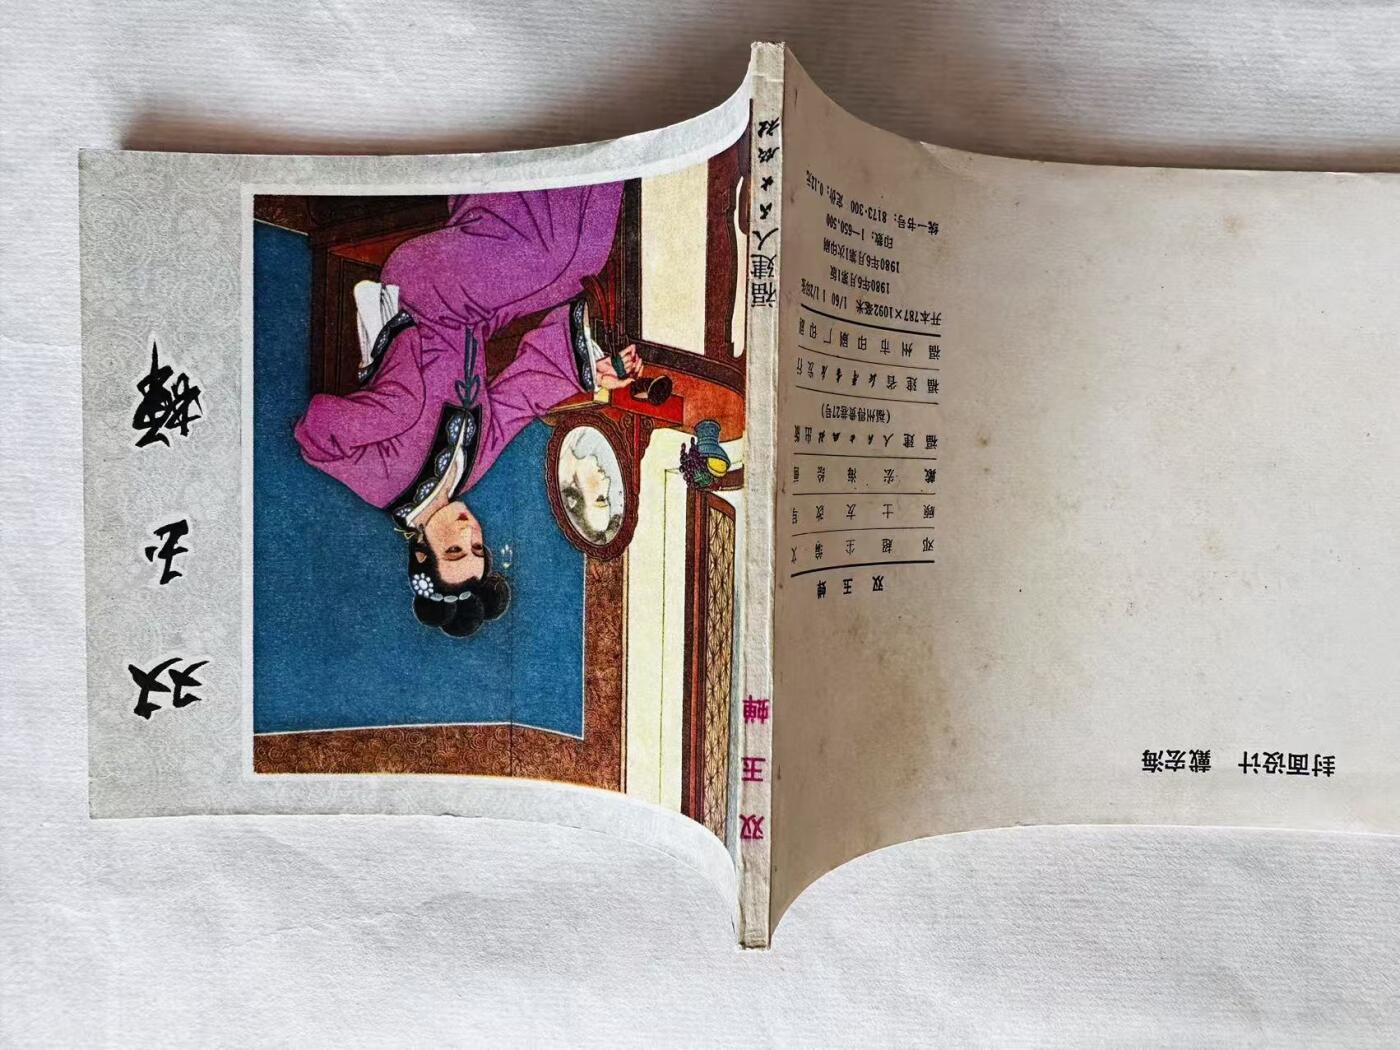 双玉蝉
双玉蝉
福建人民出版社
双玉蝉
邓超尘 编文
顾士友 改写
戴宏海 绘画
福建人民出版社出版
(福州得贵巷27号)
福建省新华书店发行
福州市印刷厂印刷
开本787×1092毫米 1/60
1980年6月第1版
1980年6月第1次印刷
印数：1—650,500
统一书号：8173·300 定价：0.12元
封面设计 戴宏海